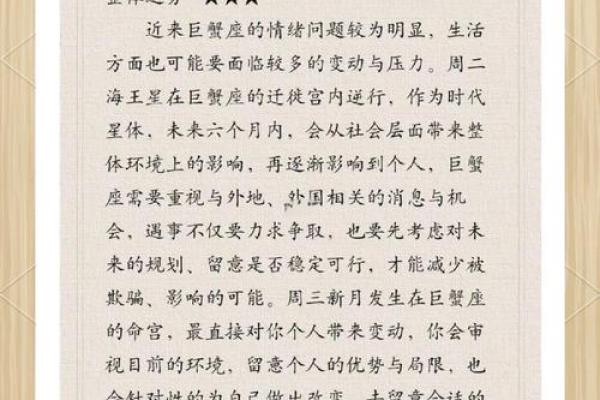 整体运势 ★★★
近来巨蟹座的情绪问题较为明显，生活
方面也可能要面临较多的变动与压力。周二
海王星在巨蟹座的迁徙宫内逆行，作为时代
星体，未来六个月内，会从社会层面带来整
体环境上的影响，再逐渐影响到个人，巨蟹
座需要重视与外地、外国相关的消息与机
会，遇事不仅要力求争取，也要先考虑对未
来的规划、留意是否稳定可行，才能减少被
欺骗、影响的可能。周三新月发生在巨蟹座
的命宫，最直接对你个人带来变动，你会审
视目前的环境，留意个人的优势与局限，也
会针对性的为自己做出改变，去留意合适的